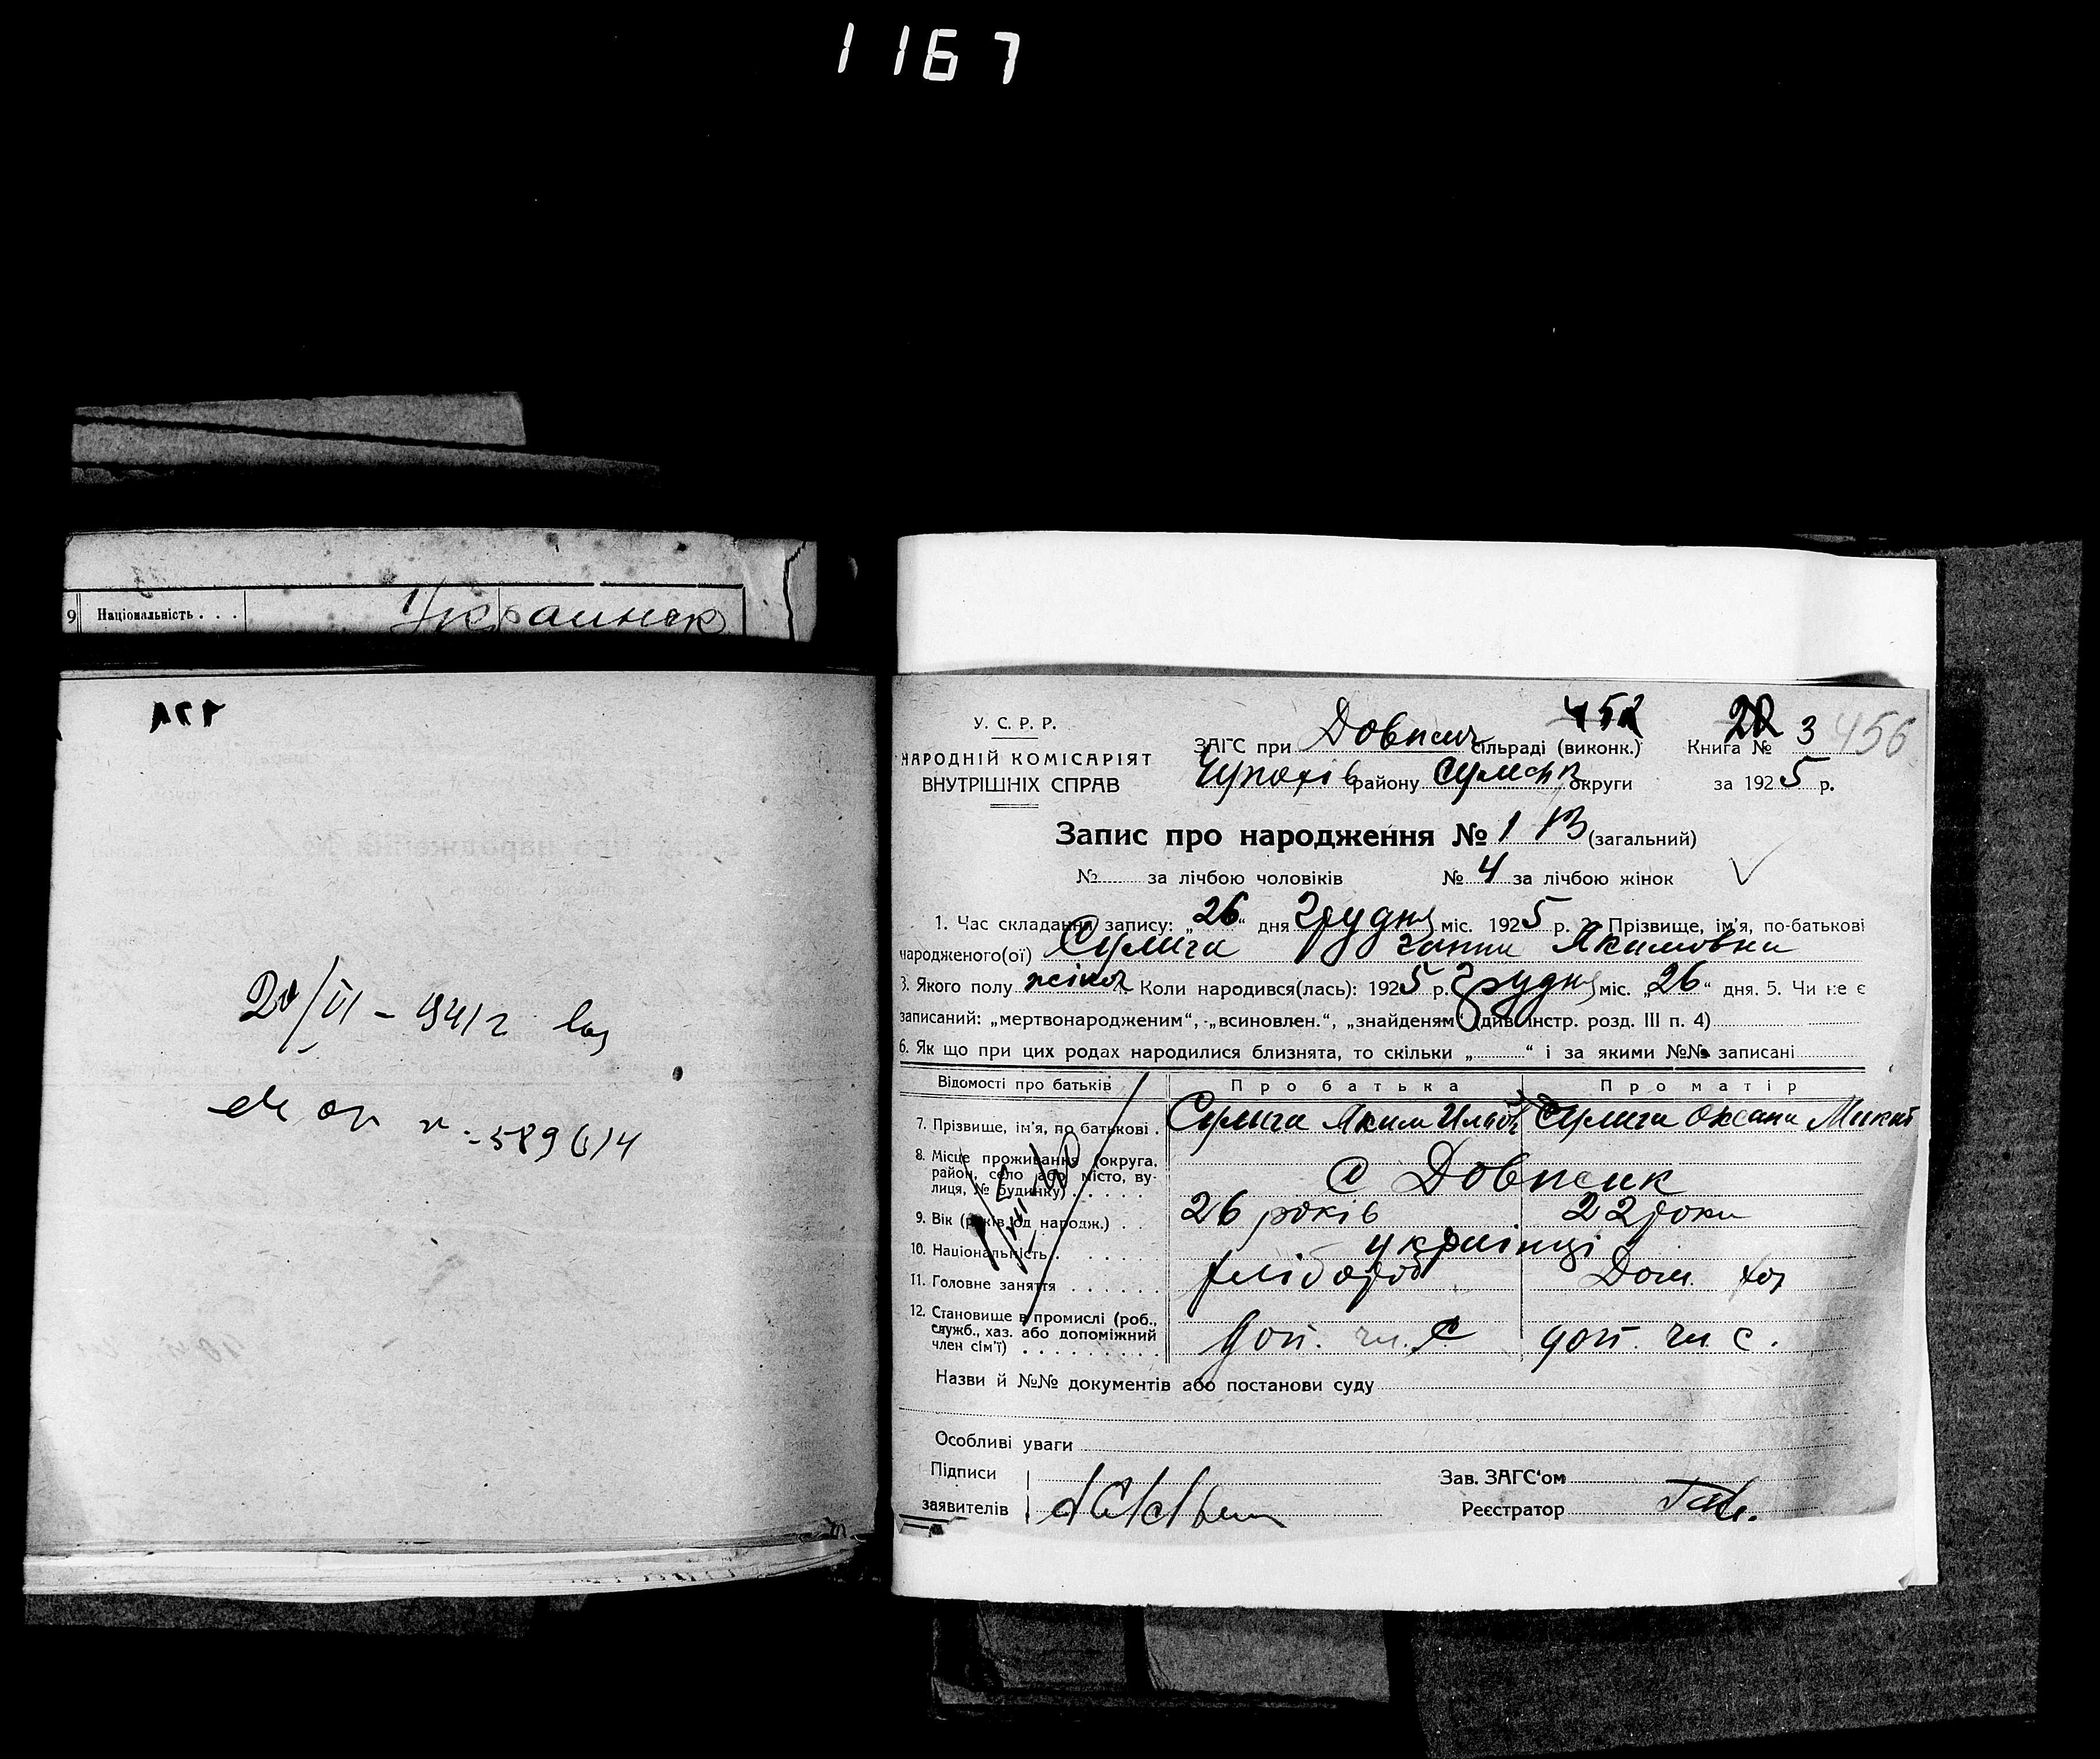 1167
9 Національність . . .
Украинск
20/VI - 941 г
№ - 589614
У. С. Р. Р.
НАРОДНІЙ КОМІСАРІЯТ
ВНУТРІШНІХ СПРАВ
ЗАГС при Довжич сільраді (виконк.)
району Сумськ округи
452
Книга № 3 456
за 1925 р.
Запис про народження № 1 (загальний)
№ за лічбою чоловіків № 4 за лічбою жінок
1. Час складання запису: „26“ дня Грудня міс. 1925 р. 2. Прізвище, ім'я, по-батькові
народженого(ої) Сулига Ганна Якимовна
3. Якого полу жіноч Коли народився(лась): 1925 р. Грудня міс. „26“ дня. 5. Чи не є
записаний: „мертвонародженим“, „всиновлен.“, „знайденям“ (див. інстр. розд. III п. 4)
6. Як що при цих родах народилися близнята, то скільки „ “ і за якими №№ записані
Відомості про батьків Про батька Про матір
7. Прізвище, ім'я, по батькові . Сулига Яким Ильєв Сулига Оксана Микит
8. Місце проживання (округа,
район, село або місто, ву-
лиця, № будинку) . . . . .
с Довжик
9. Вік (років од народж.) . . 26 років 22 роки
10. Національність . . . . . українці
11. Головне заняття . . . . . . хлібороб Дом. хоз
12. Становище в промислі (роб.,
служб., хаз. або допоміжний
член сім'ї) . . . . . . . . .
доп. чл. С доп. чл. с.
Назви й №№ документів або постанови суду
Особливі уваги
Підписи
заявителів
Зав. ЗАГС'ом
Реєстратор